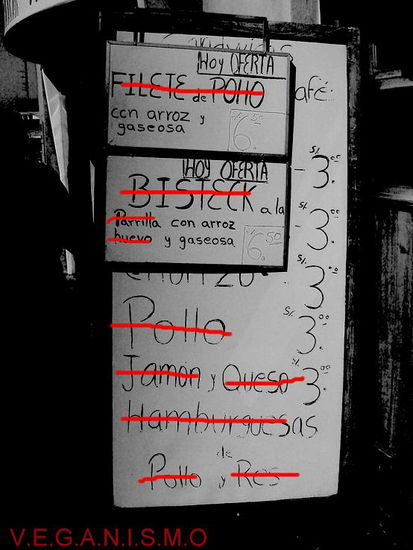 Sandwichs
café
HOY OFERTA
FILETE de POLLO
con arroz y
gaseosa
6.50
HOY OFERTA
BISTECK a la
Parrilla con arroz
huevo y gaseosa
6.50
S/. 3.00
S/. 3.00
chorizo S/. 3.00
Pollo S/. 3.00
Jamón y Queso S/. 3.00
Hamburguesas
de
Pollo y Res
V.E.G.A.N.I.S.M.O